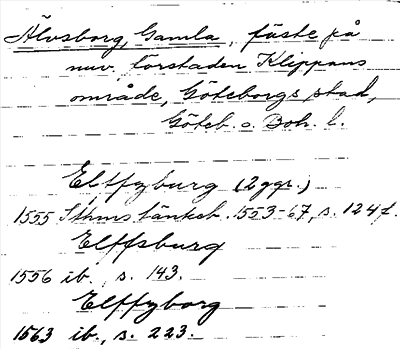 Älvsborg, Gamla, fäste på
nuv. förstaden Klippans
område, Göteborgs stad,
Göteb. o. Boh. l.
Elffzburg (2 ggr.)
1555 Sthms tänkeb. 1553-67, s. 124 f.
Elffsburg
1556 ib., s. 143.
Elffzborg
1563 ib., s. 223.